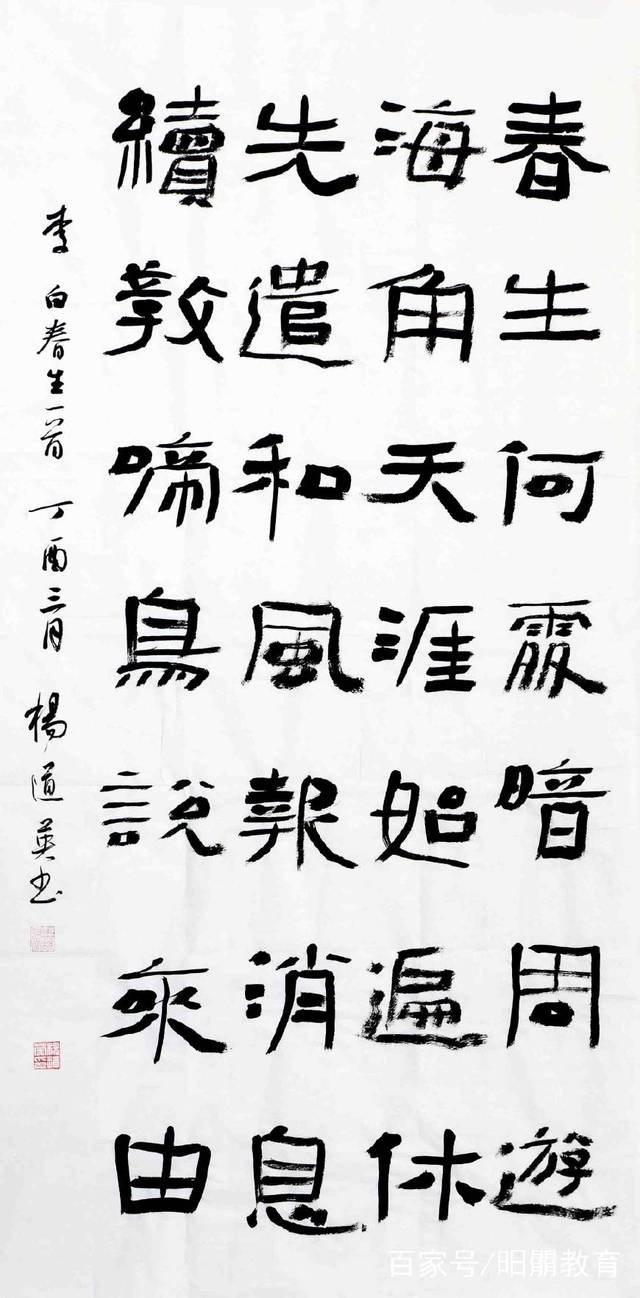 春生何處暗周遊
海角天涯始遍休
先遣和風報消息
續教啼鳥說來由
李白春生一首 丁酉三月 楊道英书
百家号/昭關教育